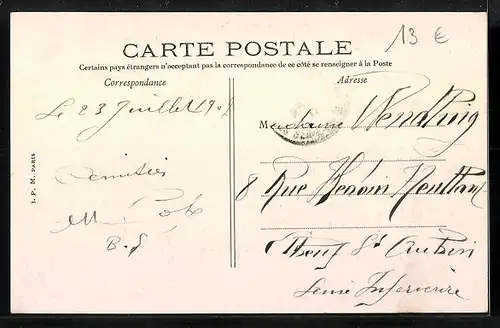 13 €
CARTE POSTALE
Certains pays étrangers n'acceptant pas la correspondance de ce côté se renseigner à la Poste
Correspondance
Adresse
Le 23 Juillet
Amitiés
B. S
I. P. M. PARIS
Madame Wendling
8 Rue
St Aubin
Seine Inferieure